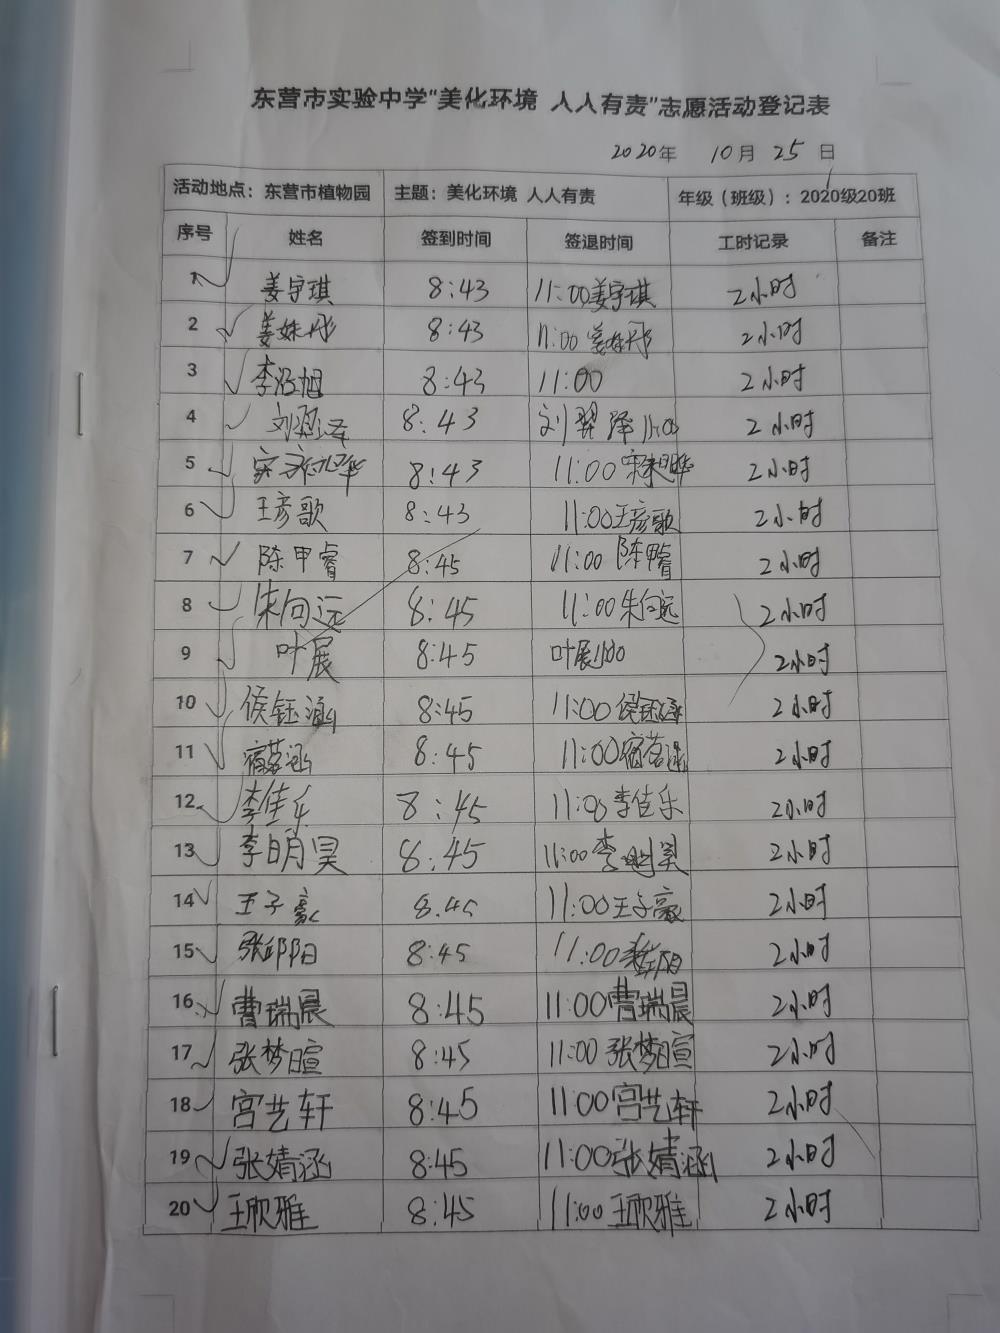 东营市实验中学“美化环境 人人有责”志愿活动登记表
2020年 10月 25日
活动地点：东营市植物园 主题：美化环境 人人有责 年级（班级）：2020级20班
序号 姓名 签到时间 签退时间 工时记录 备注
1 姜宇琪 8:43 11:00姜宇琪 2小时
2 姜姝彤 8:43 11:00姜姝彤 2小时
3 李旭 8:43 11:00 2小时
4 刘泽 8:43 刘泽11:00 2小时
5 8:43 11:00 2小时
6 王彦歌 8:43 11:00王彦歌 2小时
7 陈甲睿 8:45 11:00 陈甲睿 2小时
8 朱向远 8:45 11:00朱向远 2小时
9 叶展 8:45 叶展11:00 2小时
10 侯钰涵 8:45 11:00侯钰涵 2小时
11 宿茗涵 8:45 11:00宿茗涵 2小时
12 李佳乐 8:45 11:00李佳乐 2小时
13 李明昊 8:45 11:00李明昊 2小时
14 王子豪 8:45 11:00王子豪 2小时
15 张阳 8:45 11:00 2小时
16 曹瑞晨 8:45 11:00曹瑞晨 2小时
17 张梦暄 8:45 11:00张梦暄 2小时
18 宫艺轩 8:45 11:00宫艺轩 2小时
19 张婧涵 8:45 11:00张婧涵 2小时
20 王欣雅 8:45 11:00王欣雅 2小时